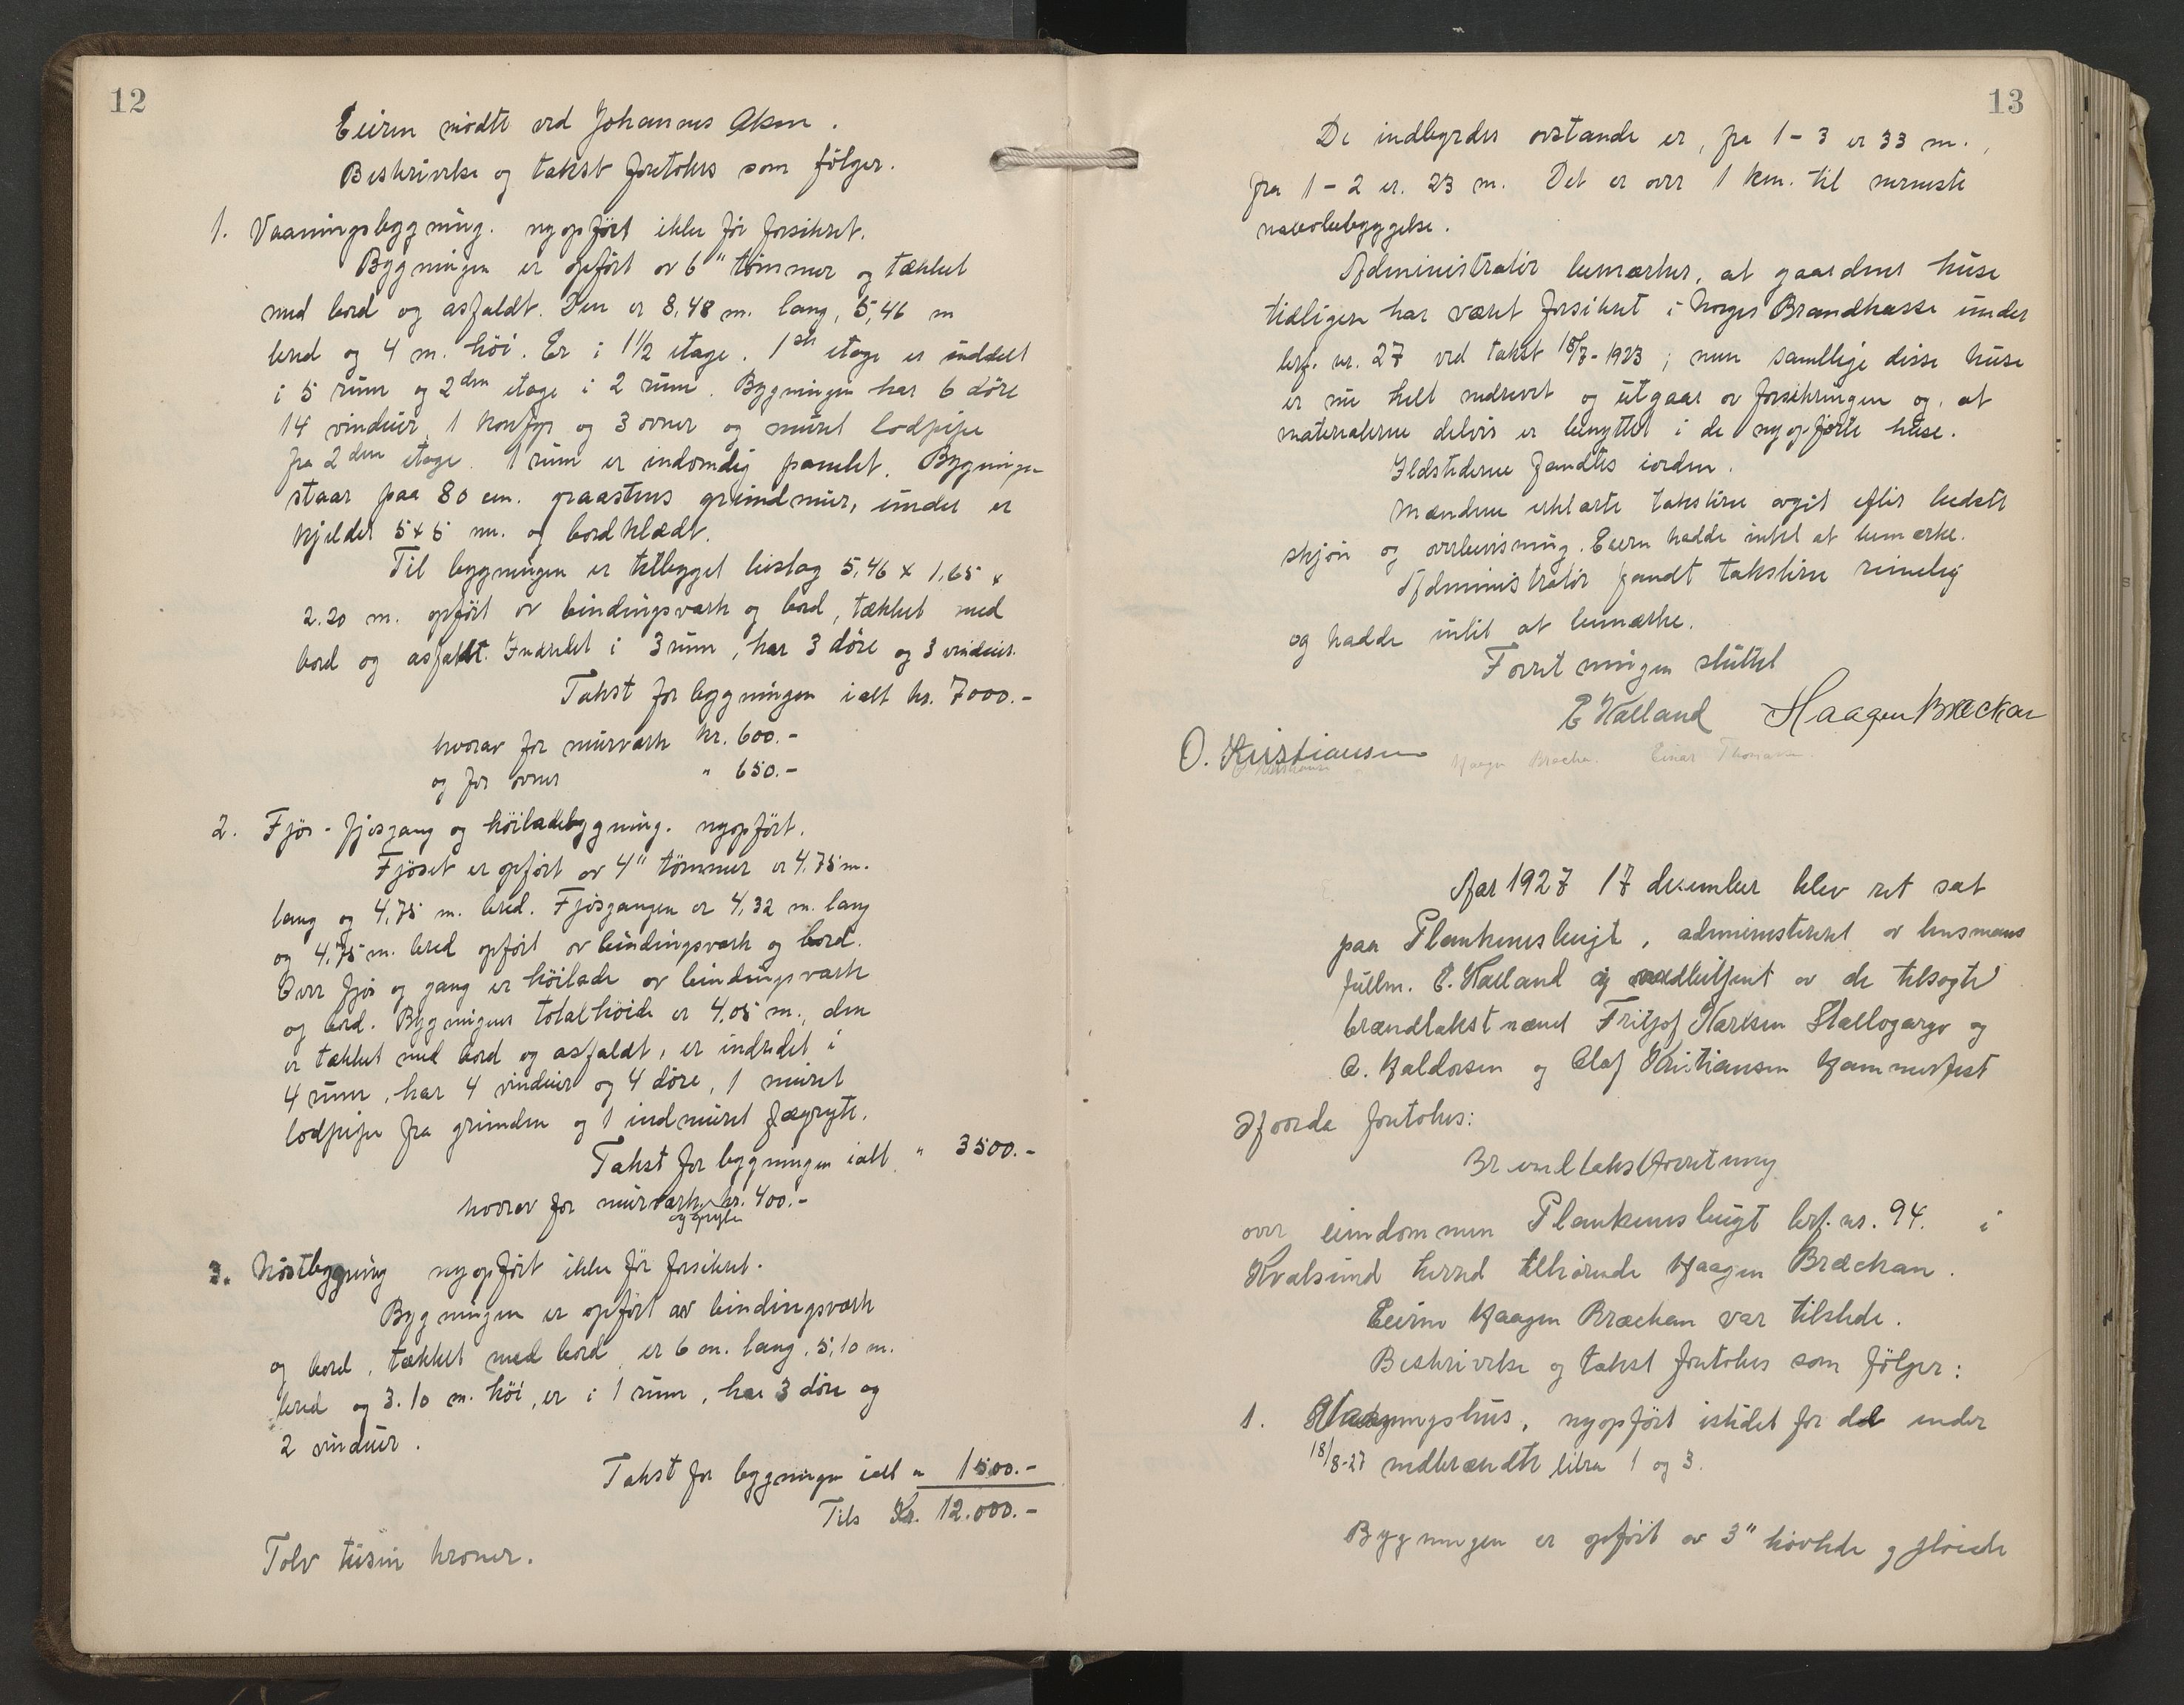 12
Eieren mødte ved Johannes Aksen.
Beskrivelse og takst foretokes som følger.
1. Vaaningsbygning. nyopført ikke før forsikret.
Bygningen er opført av 6" tømmer og tækket
med bord og asfaldt. Den er 8,48 m. lang, 5,46 m
bred og 4 m. høi. Er i 1½ etage. 1ste etage er inddelt
i 5 rum og 2den etage i 2 rum. Bygningen har 6 døre
14 vinduer, 1 komfyr og 3 ovner og muret lodpipe
fra 2den etage. 1 rum er indvendig panelet. Bygningen
staar paa 80 cm. graastens grundmur, under er
kjelder 5x5 m. og bordklædt.
Til bygningen er tilbygget bislag 5,46 x 1,65 x
2.20 m. opført av bindingsverk og bord, tækket med
bord og asfaldt. Indredet i 3 rum, har 3 døre og 3 vinduer.
Takst for bygningen ialt kr. 7000.-
hvorav for murverk kr. 600.-
og for ovner " 650.-
2. Fjøs - fjøsgang og høiladebygning. nyopført.
Fjøset er opført av 4" tømmer er 4.75 m.
lang og 4,75 m. bred. Fjøsgangen er 4,32 m. lang
og 4,75 m. bred opført av bindingsverk og bord.
Over fjøs og gang er høilade av bindingsverk
og bord. Bygningens totalhøide er 4,05 m., den
er tækket med bord og asfaldt, er indredet i
4 rum, har 4 vinduer og 4 døre, 1 muret
lodpipe fra grunden og 1 indmuret fægryte.
Takst for bygningen ialt " 3500.-
hvorav for murverk kr. 400.-
og gryte
3. Nøstbygning nyopført ikke før forsikret.
Bygningen er opført av bindingsverk
og bord, tækket med bord, er 6 m. lang, 5,10 m.
bred og 3.10 m. høi, er i 1 rum, har 3 døre og
2 vinduer.
Takst for bygningen ialt " 1500.-
Tils Kr. 12.000.-
Tolv tusin kroner.
13
De indbyrdes avstande er, fra 1-3 er 33 m.,
fra 1-2 er. 23 m. Det er over 1 km. til nermeste
nabobebyggelse.
Administrator bemærker, at gaardens huse
tidligere har været forsikret i Norges Brandkasse under
brf. nr. 27 ved takst 18/7-1923; men samtlige disse huse
er nu helt nedrevet og utgaar av forsikringen og, at
materialerne delvis er benyttet i de nyopførte huse.
Ildstederne fandtes iorden.
Mændene erklærte taksterne avgit efter bedste
skjøn og overbevisning. Eieren hadde intet at bemærke.
Administrator fandt taksterne rimelig
og hadde intet at bemærke.
Forretningen sluttet
E Kalland Haagen Bræckan
O. Kristiansen
Haagen Bræcka. Einar Thomassen
Aar 1927 17 december blev ret sat
paa Plankenesbugt, administreret av lensmans
fullm. E. Kalland og medbetjent av de tilsagte
brændtakstmænd Fritjof Karlsen Stallogargo og
A. Haldorsen og Olaf Kristiansen Hammerfest
Hvorda foretokes:
Brandtakstforretning
over eiendommen Plankenesbugt brf. nr. 94. i
Kvalsund herred tilhørende Haagen Bræckan.
Eieren Haagen Bræckan var tilstede.
Beskrivelse og takst foretokes som følger:
1. Vaaningshus, nyopført istedet for det under
18/8-27 nedbrændte litra 1 og 3.
Bygningen er opført av 3" høvlede og pløiede